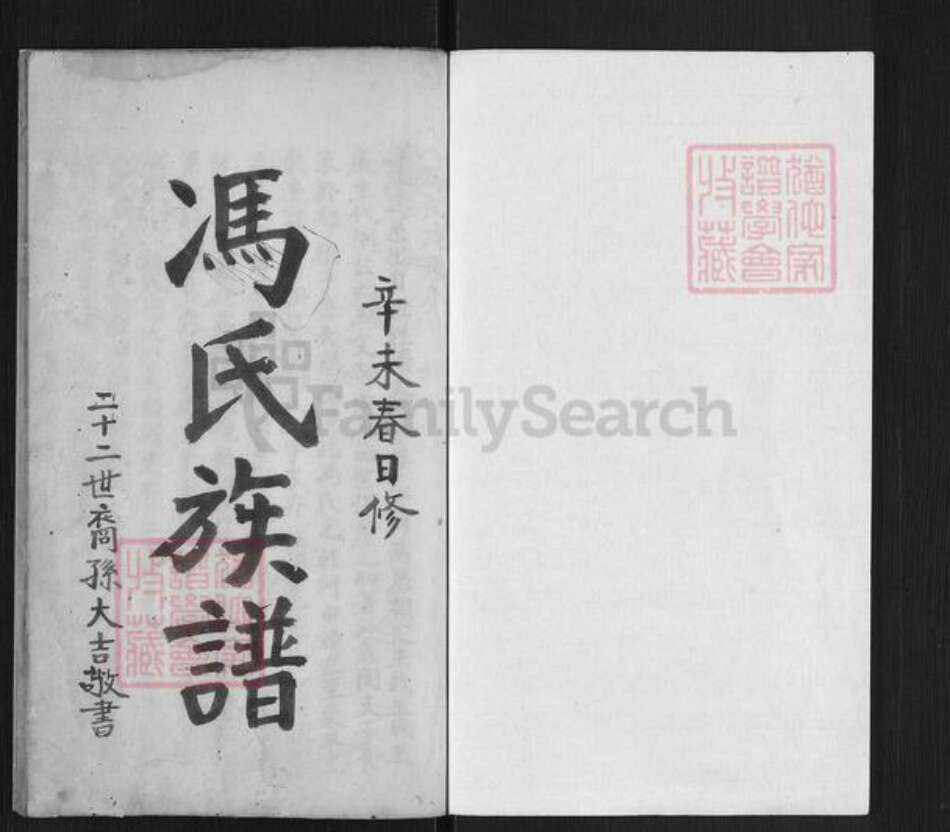 辛未春日修
馮氏族譜
二十二世裔孫大吉敬書
猶他家
譜學會
收藏
猶他家
譜學會
收藏
FamilySearch